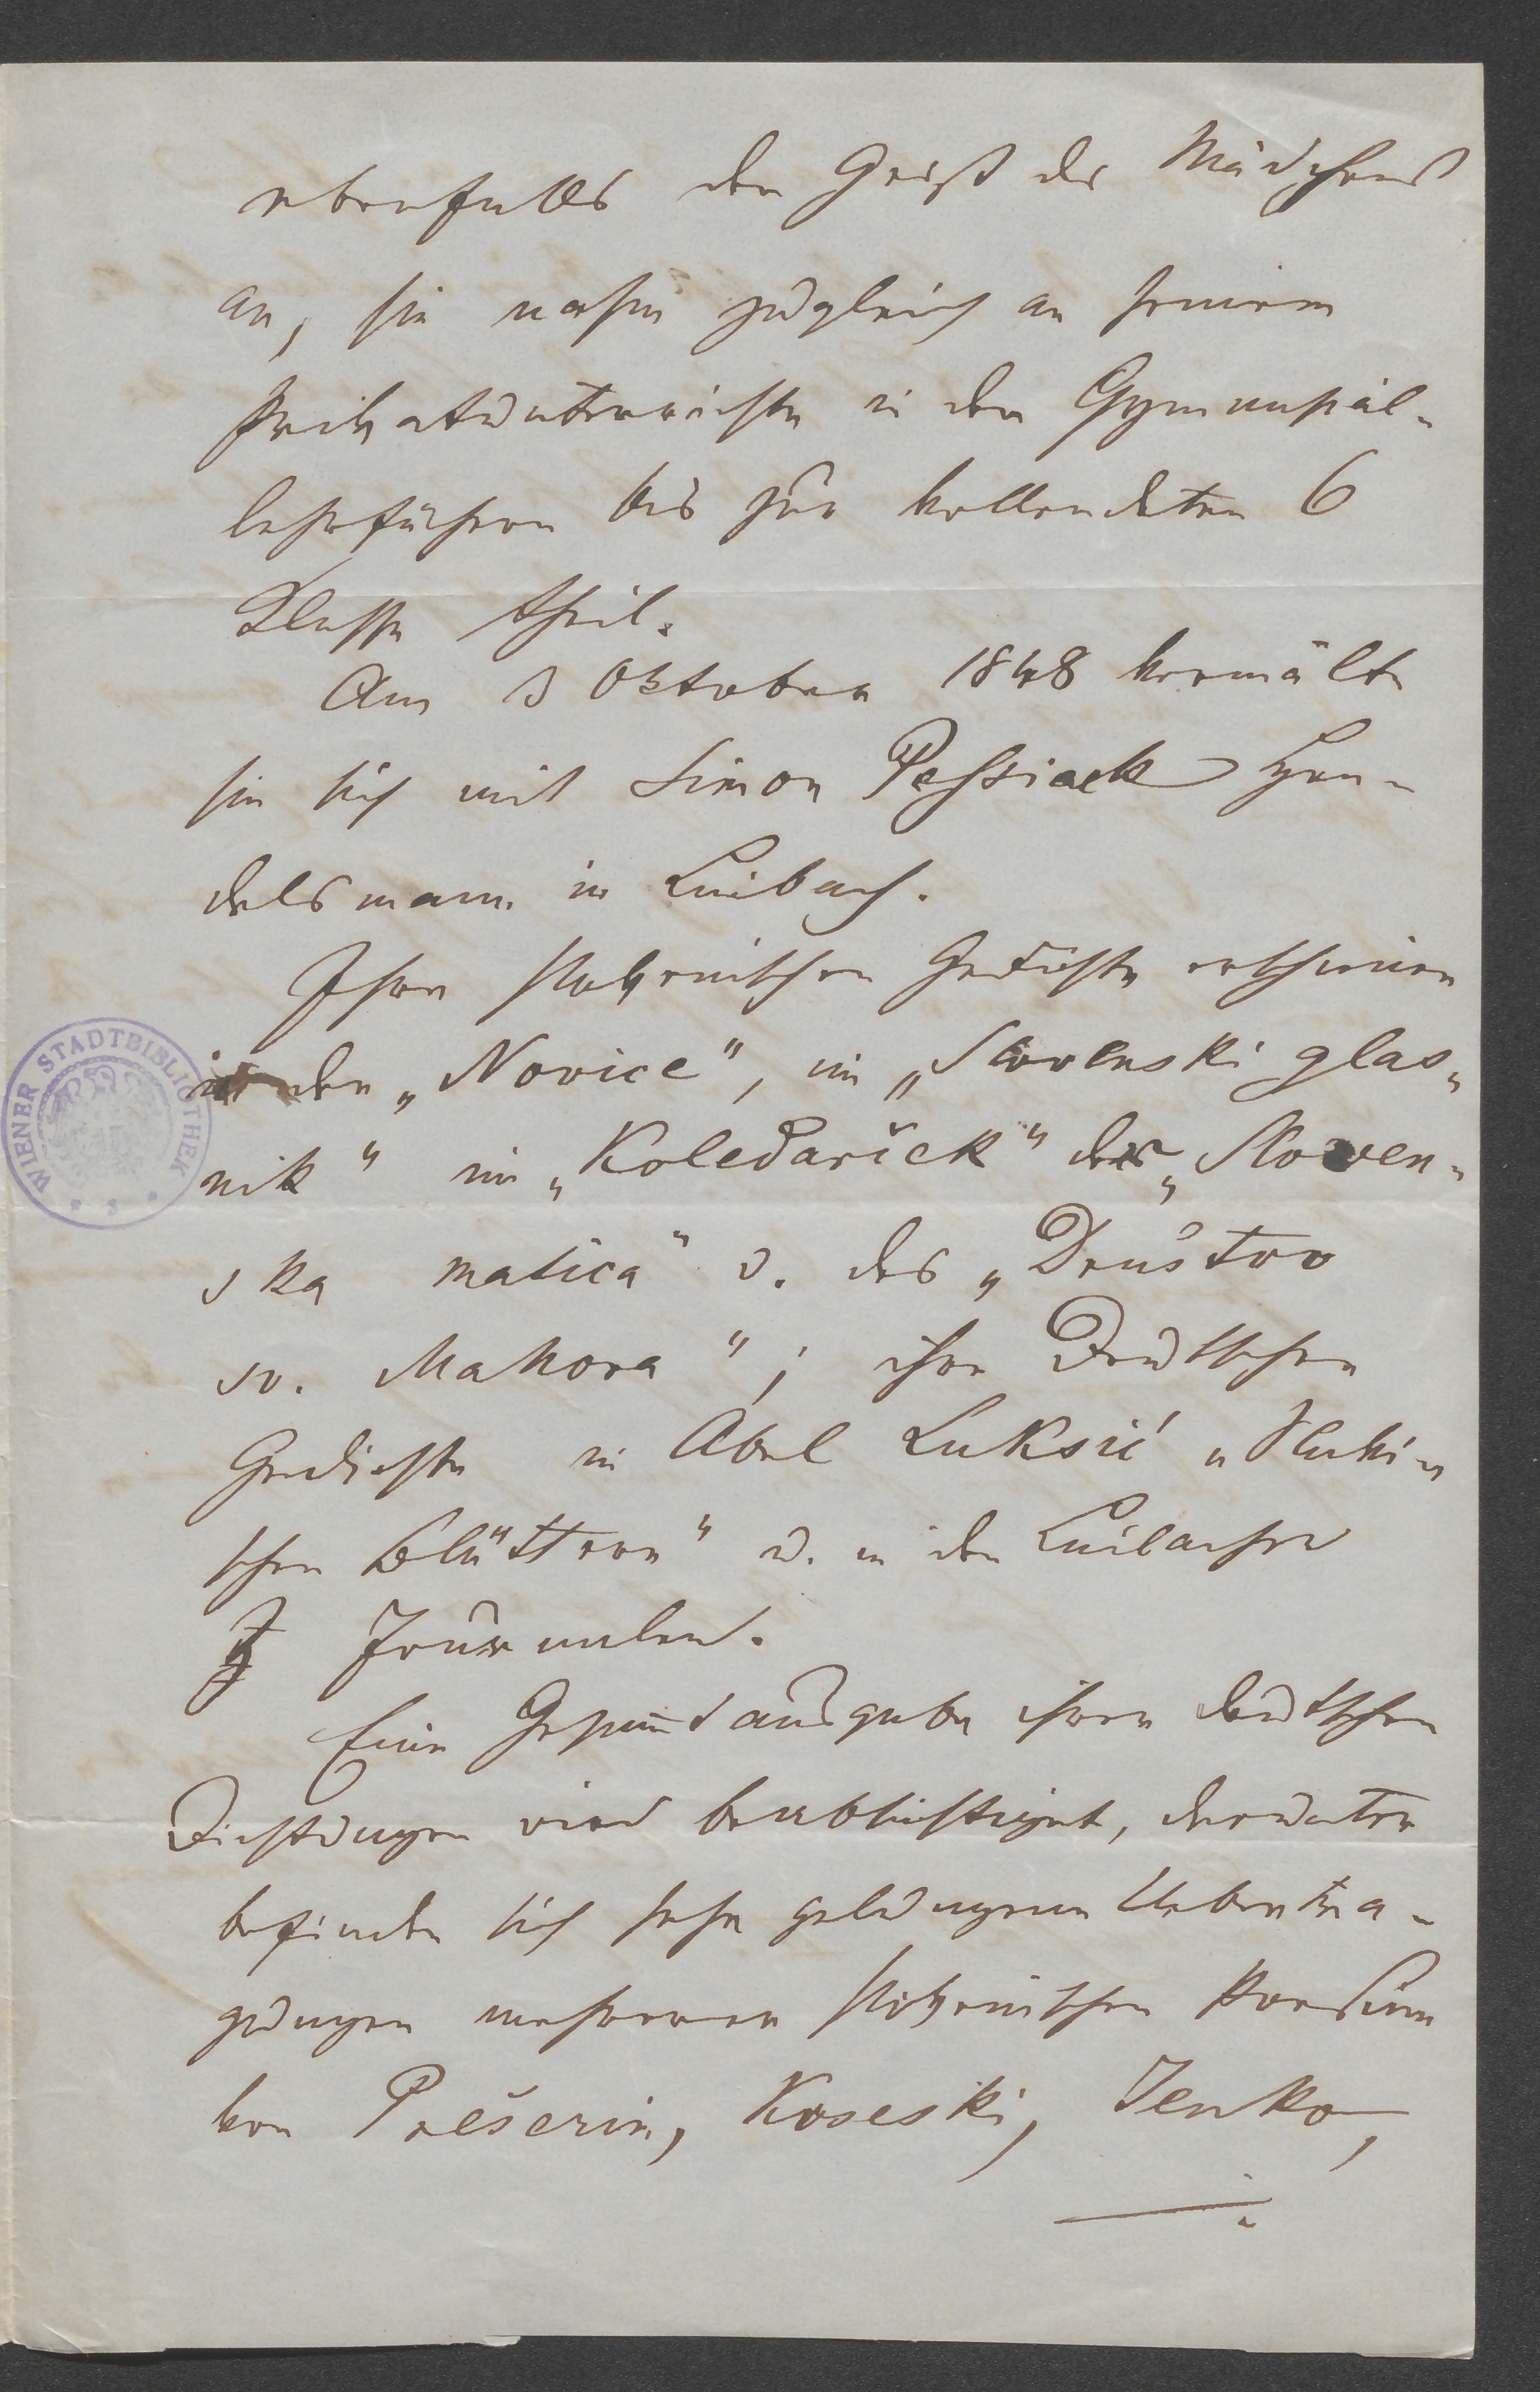 ebenfalls den Geist des Mädchens
an, sie nahm zugleich an seinem
Privatunterrichte in den Gymnasial-
lehrfächern bis zur vollendeten 6
Klasse theil.
Am 3 Oktober 1848 vermälte
sie sich mit Simon Pessiack Han-
delsmann in Laibach.
Ihre slovenischen Gedichte erschienen
in den „Novice“, im „Slovenski glas-
nik“ im „Koledarček“ der „Sloven-
ska matica“ u. des „Društvo
sv. Mahora“; ihre Deutschen
Gedichte in Abel Luksić „Slavi-
schen Blättern“ u. in den Laibacher
J Journalen.
Eine Gesam̄tausgabe ihrer deutschen
Dichtungen wird beabsichtiget, darunter
befinden sich sehr gelungene Uebertra-
gungen mehrerer slovenischen Poesien
von Prešerin, Koseski, Jenko,
WIENER STADTBIBLIOTHEK